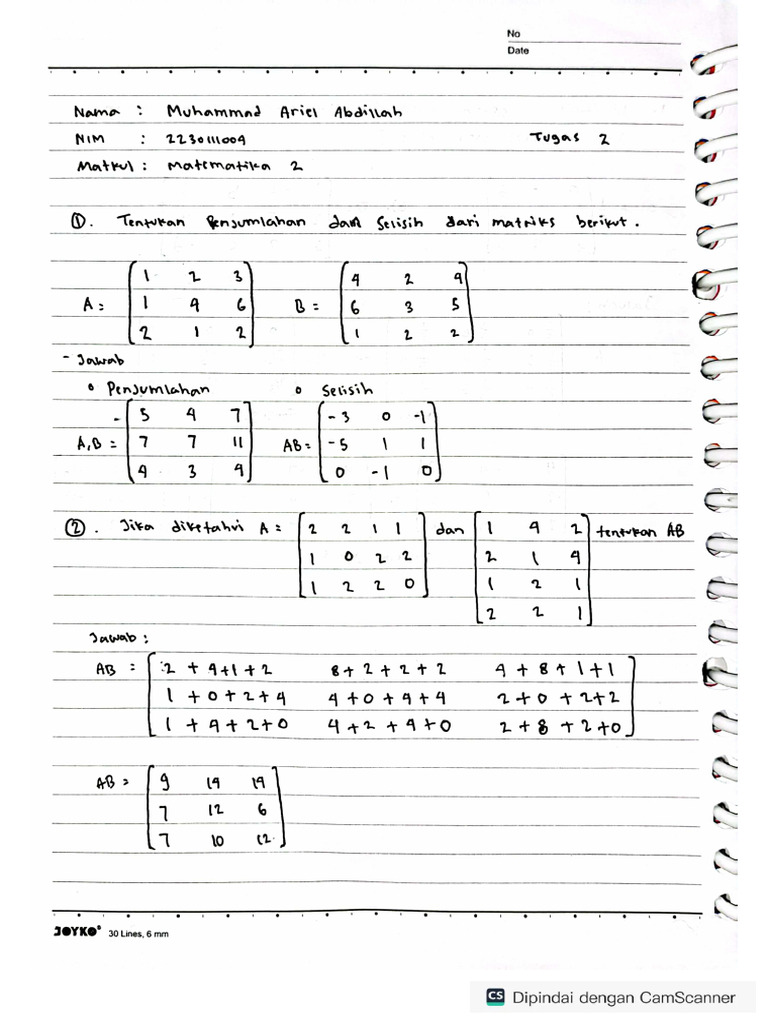 No
Date
Nama : Muhammad Ariel Abdillah
NIM : 2230111004 Tugas 2
Matkul : Matematika 2
①. Tentukan Penjumlahan dan Selisih dari matriks berikut.
1 2 3 4 2 4
A = 1 4 6 B = 6 3 5
2 1 2 1 2 2
- Jawab
° Penjumlahan ° Selisih
5 4 7 -3 0 -1
A,B = 7 7 11 AB = -5 1 1
4 3 4 0 -1 0
②. Jika diketahui A = 2 2 1 1 dan 1 4 2 tentukan AB
1 0 2 2 2 1 4
1 2 2 0 1 2 1
2 2 1
Jawab :
AB = 2 + 4 + 1 + 2 8 + 2 + 2 + 2 4 + 8 + 1 + 1
1 + 0 + 2 + 4 4 + 0 + 4 + 4 2 + 0 + 2 + 2
1 + 4 + 2 + 0 4 + 2 + 4 + 0 2 + 8 + 2 + 0
AB = 9 14 14
7 12 6
7 10 12
JOYKO® 30 Lines, 6 mm
CS Dipindai dengan CamScanner